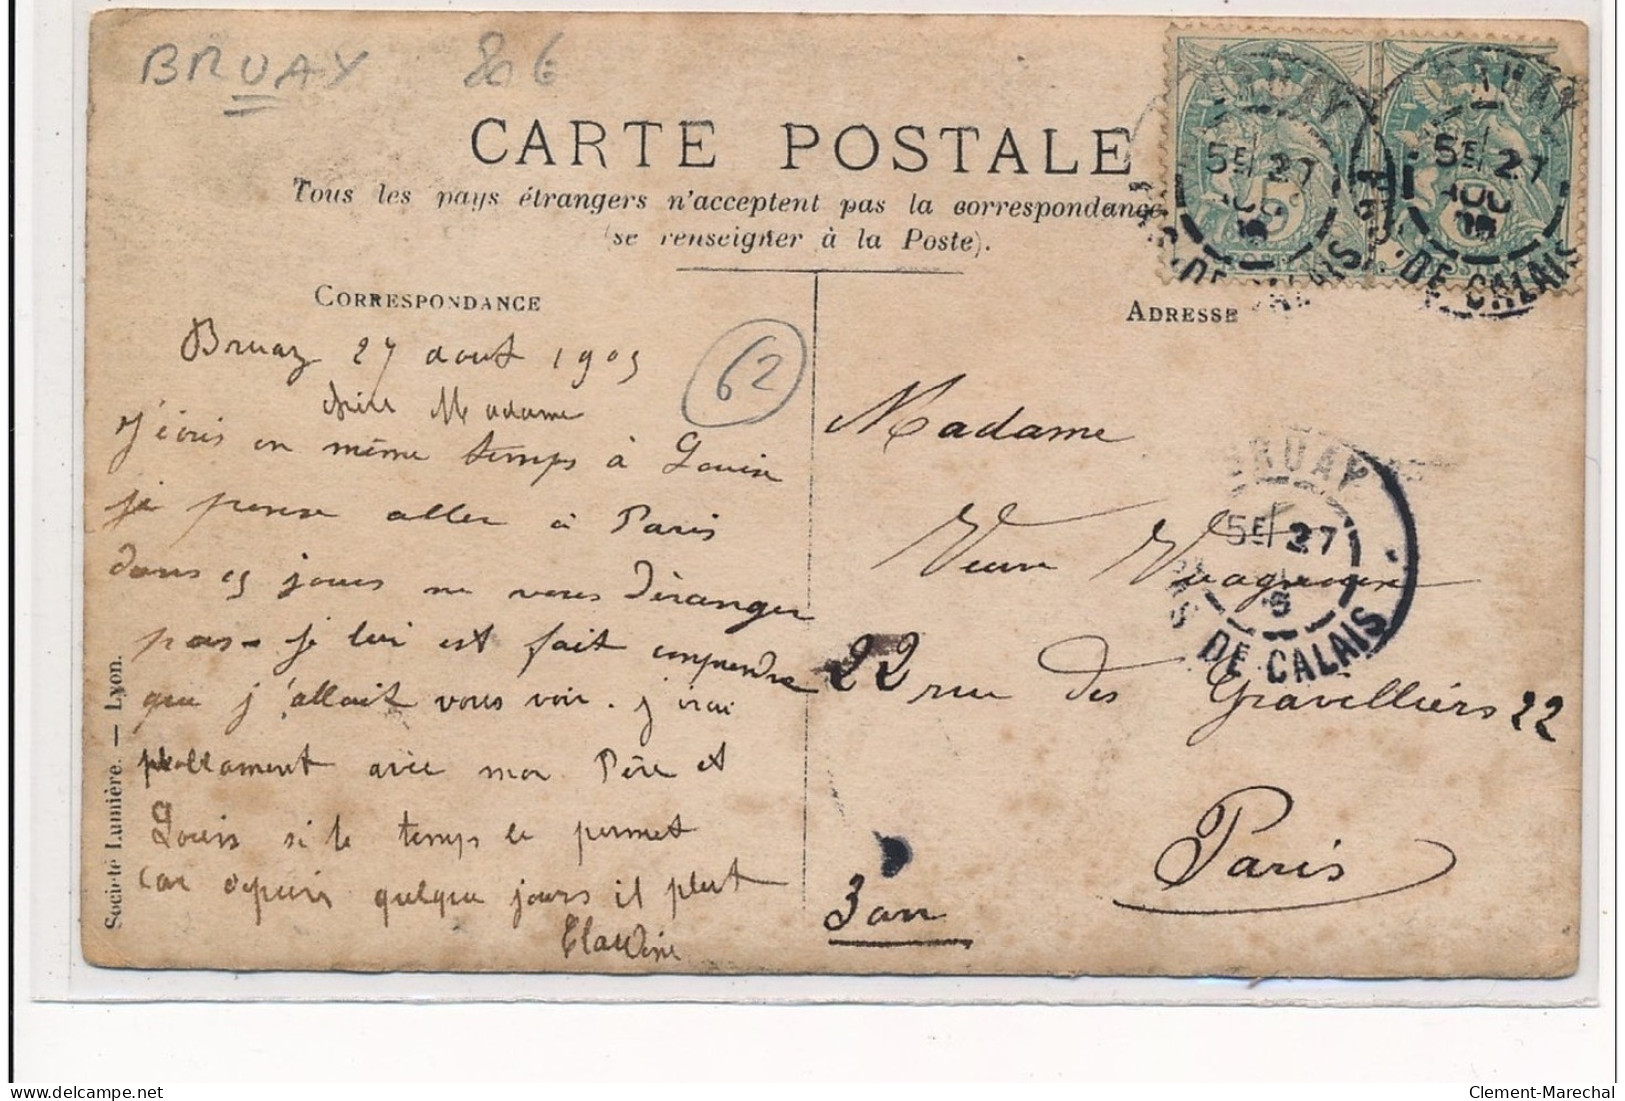 BRUAY 80€
CARTE POSTALE
Tous les pays étrangers n'acceptent pas la correspondance
(se renseigner à la Poste).
CORRESPONDANCE
ADRESSE
Bruay 27 aout 1905
chère Madame
j'écris en même temps à Louise
je pense aller à Paris
dans 15 jours ne vous déranger
pas - je lui est fait comprendre
que j'allait vous voir. j'irai
avec mon Père et
Louis si le temps le permet
car depuis quelque jours il pleut
Claudine
62
Madame
Veuve
22 rue des Gravelliers 22
Paris
3 arr
Société Lumière. — Lyon.
BRUAY
5E 27
AOU
05
PAS-DE-CALAIS
BRUAY
5E 27
AOU
05
PAS-DE-CALAIS
BRUAY
5E 27
PAS-DE-CALAIS
delcampe.net
Clement-Marechal